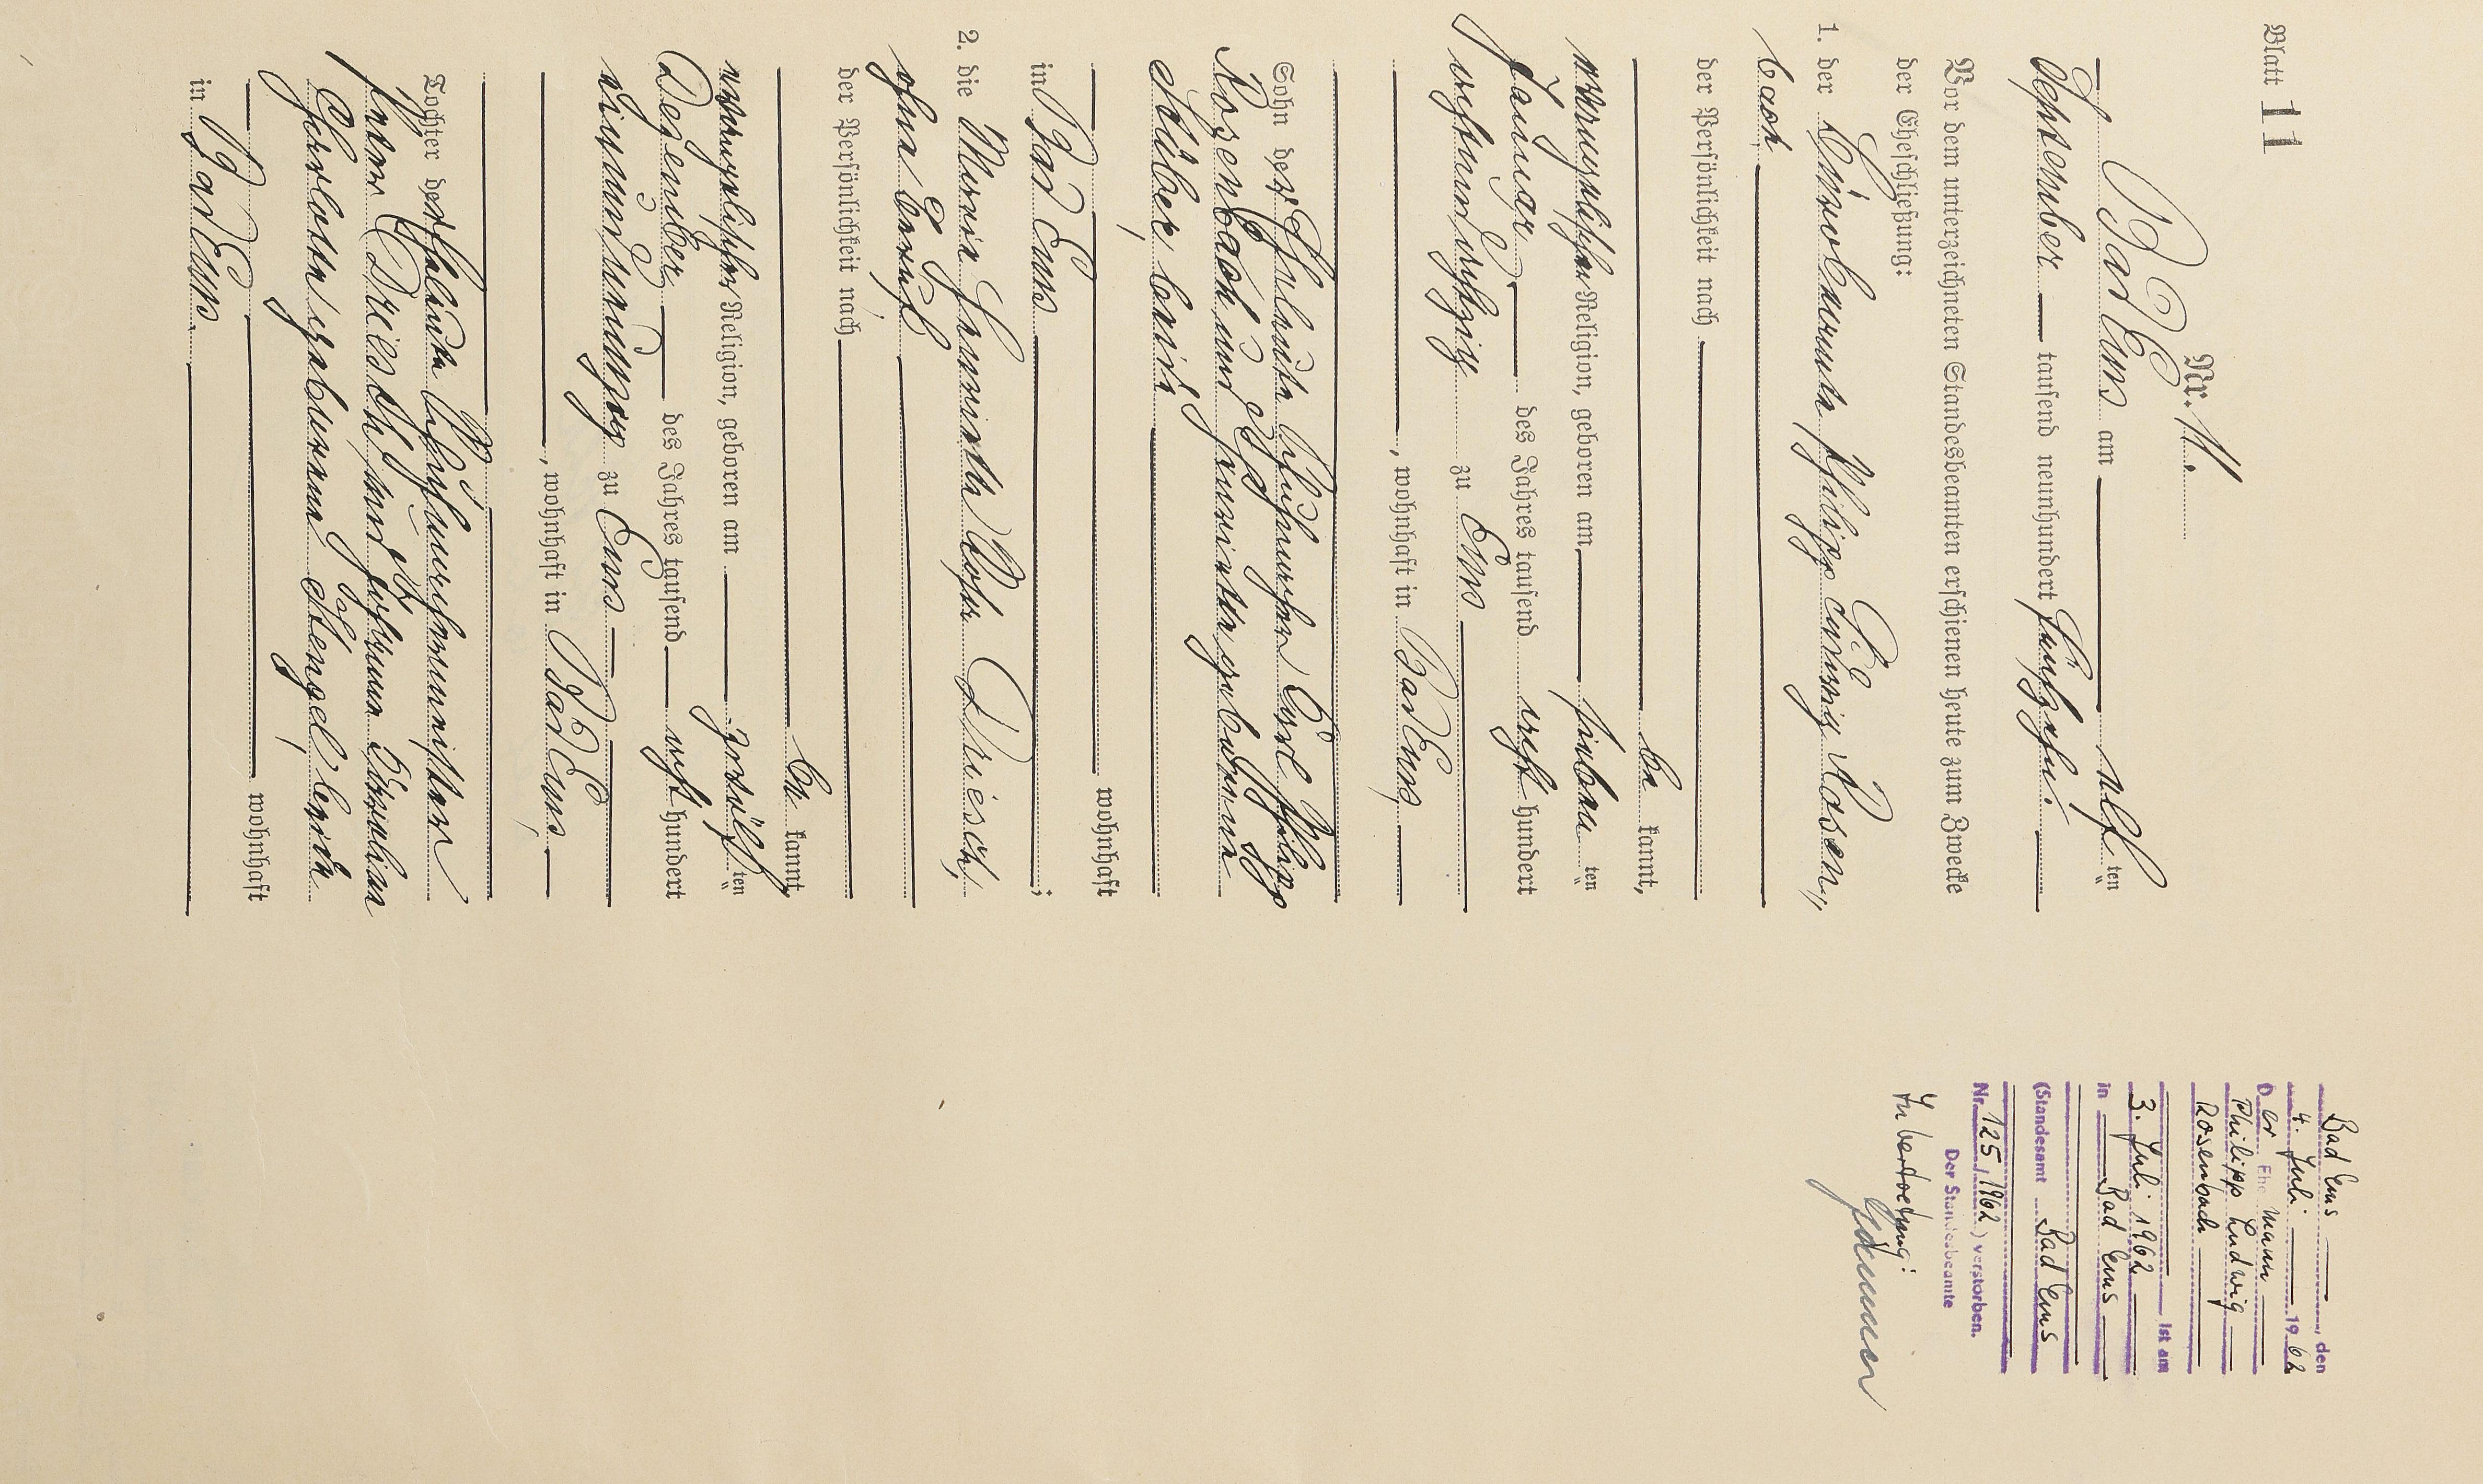 Blatt 11
Nr. 11.
Bad Ems am elf ten
September tausend neunhundert fünfzehn.
Vor dem unterzeichneten Standesbeamten erschienen heute zum Zwecke
der Eheschließung:
1. der Philipp Ludwig Rosen-
bach
der Persönlichkeit nach
be kannt,
evangelischer Religion, geboren am sieben ten
Januar des Jahres tausend acht hundert
achtundachtzig zu Ems
, wohnhaft in Bad Ems,
Sohn der Eheleute Carl Philipp
Rosenbach und Henriette geborene
Stüber, beide
wohnhaft
in Bad Ems ;
2. die Maria Henriette Driesch,
ohne Beruf
der Persönlichkeit nach
be kannt,
evangelischer Religion, geboren am zwölf ten
Dezember des Jahres tausend acht hundert
einundneunzig zu Ems
, wohnhaft in Bad Ems,
Tochter der Eheleute
Driesch und Johanna
Charlotte geborene Stengel, beide
wohnhaft
in Bad Ems.
Bad Ems, den
4. Juli 1962
Der Ehemann
Philipp Ludwig
Rosenbach ist am
3. Juli 1962
in Bad Ems
(Standesamt Bad Ems
Nr. 125/1962) verstorben.
Der Standesbeamte
In Vertretung: